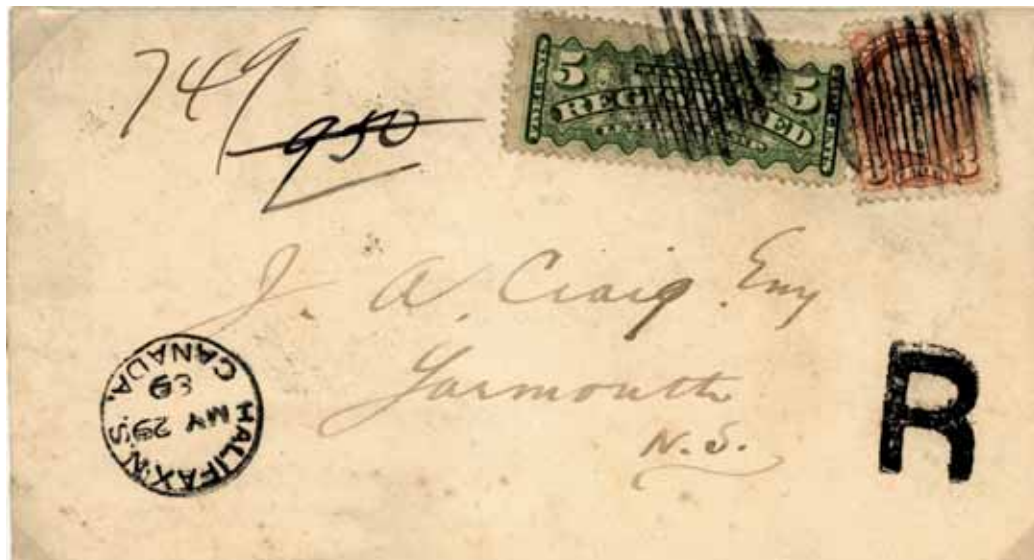 749
950
5 REGISTERED 5
J. A. Craig Esq
Yarmouth
N.S.
HALIFAX N.S.
MY 29
89
CANADA.
R
3